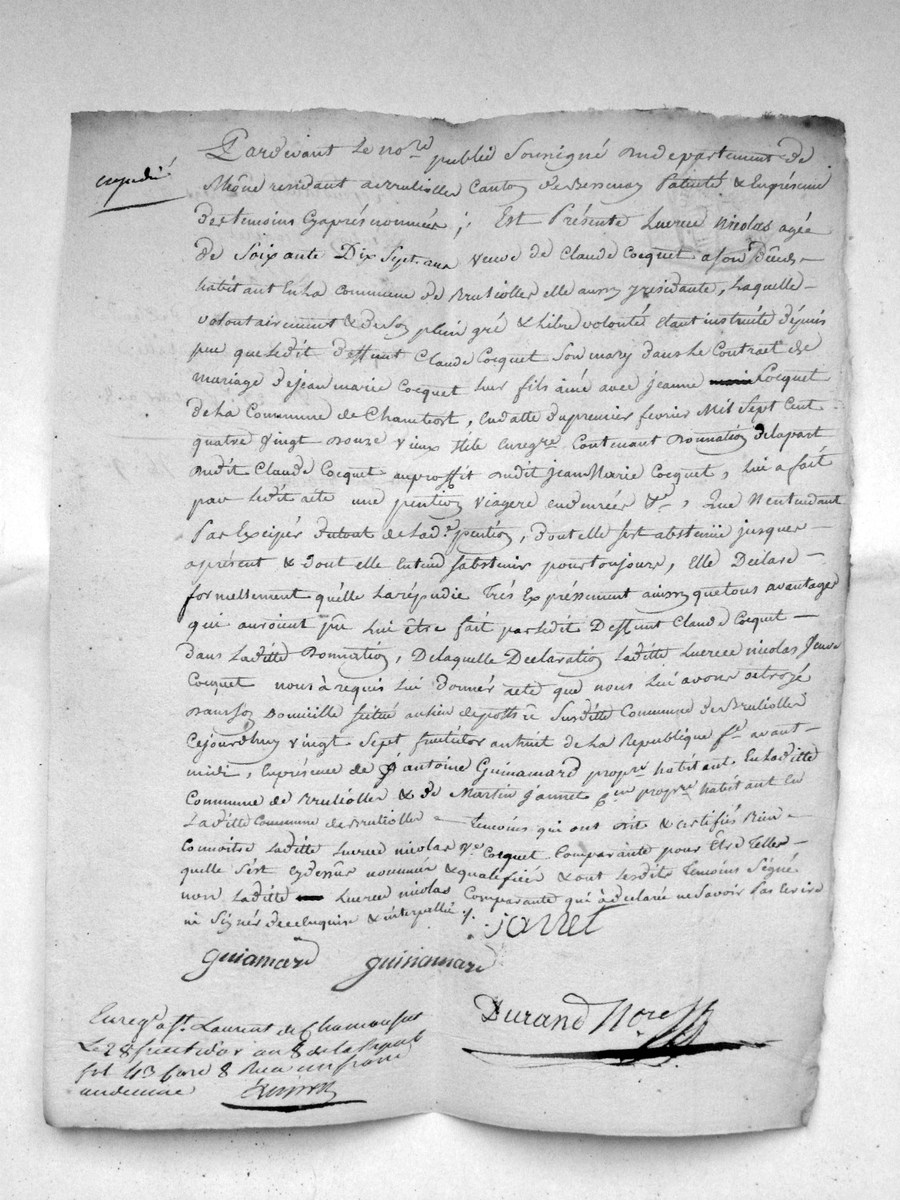 expedié
Pardevant Le no.re public Soussigné du departement du
Rhône residant a Brulioller Canton de Bessenay Patenté & En présence
des temoins Cy après nommés ; Est Présente Lucrece Nicolas agée
de Soixante Dix Sept ans Veuve de Claude Cocquet
habitant En La Commune de Brulioller elle aussy residante, Laquelle
volontairement & de Son plein gré & Libre volonté Etant instruite dépuis
peu que Ledit deffunt Claude Cocquet Son mary dans Le Contract de
mariage de jean marie Cocquet Leur fils ainé avec jeanne Cocquet
de La Commune de Chambost, En datte du premier fevrier Mil Sept Cent
quatre vingt Douze vieux Stile Enregré. Contenant Donnation de La part
dudit Claude Cocquet au proffit dudit Jean Marie Cocquet, Lui a fait
par Ledit acte une pention viagere en denrées &a, Que N'entendant
Pas Exciper du tout de Lade. pention, dont elle s'est abstenüe jusques
apresent & dont elle Entend s'abstenir pour toujours, Elle Déclare
formellement quélle La répudie Trés Expréssement ainsy que tous avantages
qui auroient pû Lui être fait par Ledit Deffunt Claude Cocquet
dans Laditte Donnation, De Laquelle Déclaration Laditte Lucrece nicolas Veuve
Cocquet nous à requis Lui donnér acte que nous Lui avons octroyé
dans Son Domicille Scitué au lieu de Susditte Commune de Brulioller
Cejourdhuy vingt Sept fructidor an huit de La Republique fse. avant
midi, En présence de Sr antoine Guinamard propre. habitant En Laditte
Commune de Brulioller & de Martin Jannet propre habitant En
Laditte Commune de Brulioller temoins qui ont dit & certifiés Bien
Connoitre Laditte Lucrece nicolas Ve. Cocquet Comparante pour Etre Telle
quelle S'est cy dessus nommée & qualifiée & ont Lesdits Temoins Signé
non Laditte Lucrece nicolas Comparante qui à declaré ne Savoir Pas Ecrire
ni Signér de ce Enquise & interpellée
Jannet
guiamard guinamard
Durand Nore
Enregé. a St. Laurent de Chamousset
Le 28 fructidor an 8 de la Repub
fol 43 Case 8 Recu un franc